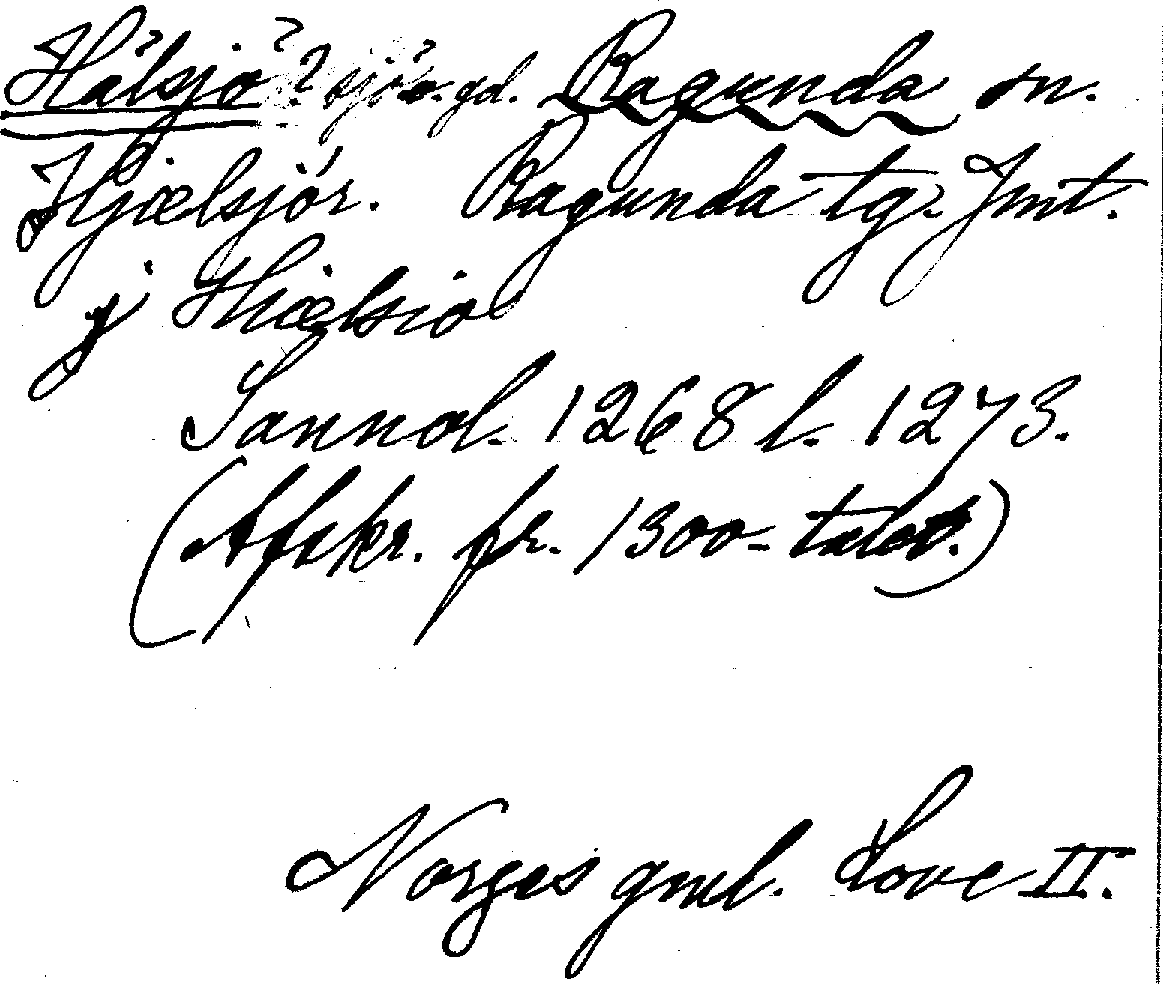 Hälsjö? ? sjö o. gd. Ragunda sn.
Hjælsjór. Ragunda tg. Jmt.
j Hiælsio
Sannol. 1268 l. 1273.
(Afskr. fr. 1300-talet.)
Norges gml. Love II.